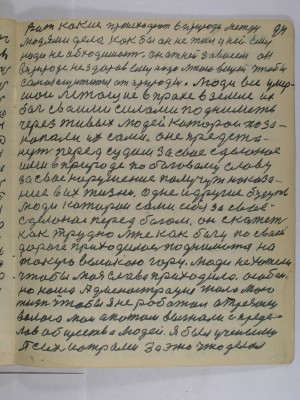 Вот какие происходят в природе между
людьми дела как бы он не жил у ней. Ему
надо не обходимость. он от ней зависим он
в природе не здоров ему надо много вещей чтобы
самозащитити от природы. Люди вы умер-
шои лежащие в прахе в земле им
бог своими силами поднимить
через живых людей которои зоко-
пали их сами. оне предста-
нут перед судом за свое сделоное
ими в природе по боговому слову
за свое нарушение получут наказа-
ние в их жизни. Одне и другие будуть
люди которыи сами себя за свое
сделоное перед богом. он скажет
как трудно мне как богу по своей
дороге приходилось подниматся на
токую высокою гору. люди не хотели
чтобы моя слава приходила. особен-
но наша Администрация знала мою
жизнь чтобы я не работал а требовал
своего мои а потом выгнали с преде-
лов общества людей. Я был ученый
Псих и отрами за это что делал